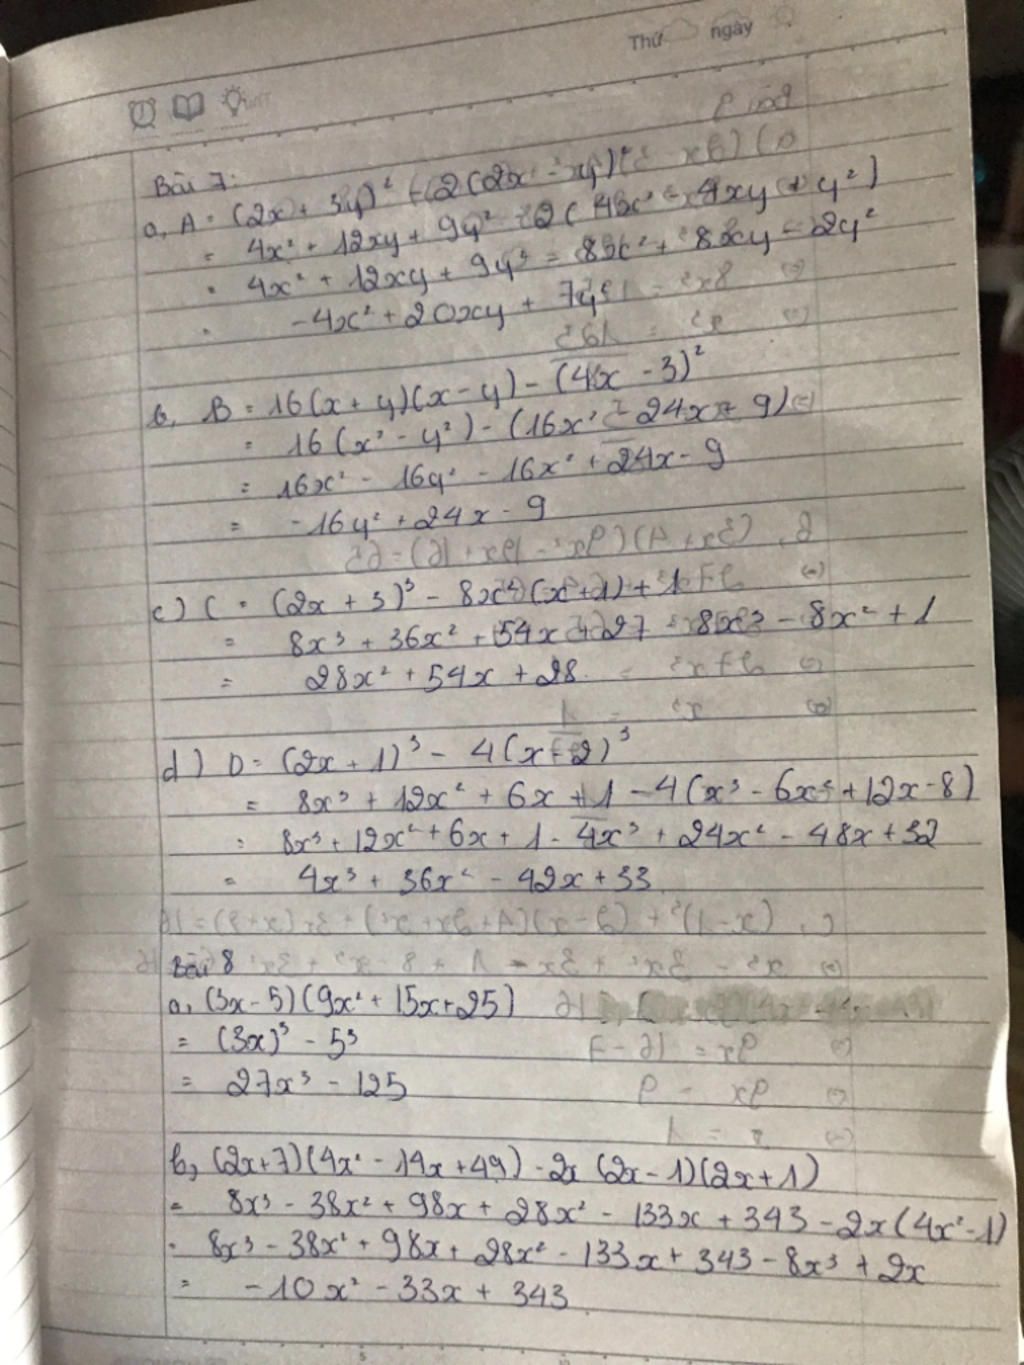 Thứ ngày
Bài 7:
a, A = (2x + 3y)² - 2(2x - y)²
= 4x² + 12xy + 9y² - 2(4x² - 4xy + y²)
= 4x² + 12xy + 9y² - 8x² + 8xy - 2y²
= -4x² + 20xy + 7y²
b, B = 16(x + y)(x - y) - (4x - 3)²
= 16(x² - y²) - (16x² - 24x + 9)
= 16x² - 16y² - 16x² + 24x - 9
= -16y² + 24x - 9
c) C = (2x + 3)³ - 8x²(x + 1) + 1
= 8x³ + 36x² + 54x + 27 - 8x³ - 8x² + 1
= 28x² + 54x + 28
d) D = (2x + 1)³ - 4(x - 2)³
= 8x³ + 12x² + 6x + 1 - 4(x³ - 6x² + 12x - 8)
= 8x³ + 12x² + 6x + 1 - 4x³ + 24x² - 48x + 32
= 4x³ + 36x² - 42x + 33
Bài 8
a, (3x - 5)(9x² + 15x + 25)
= (3x)³ - 5³
= 27x³ - 125
b, (2x + 7)(4x² - 19x + 49) - 2x (2x - 1)(2x + 1)
= 8x³ - 38x² + 98x + 28x² - 133x + 343 - 2x(4x² - 1)
= 8x³ - 38x² + 98x + 28x² - 133x + 343 - 8x³ + 2x
= -10x² - 33x + 343